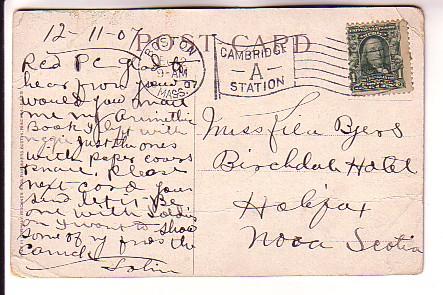 12-11-07
POST CARD
BOSTON
DEC 12
9-AM
07
MASS.
CAMBRIDGE
A
STATION
Rec'd PC glad to
hear from you
would you mail
me my Arimetic
Book I left with
just the ones
with paper covers
small. Please
next card you
send let it Be
one with
on I want to show
some of my friends the
Miss Lila Byers
Birchdale Hotel
Halifax
Nova Scotia